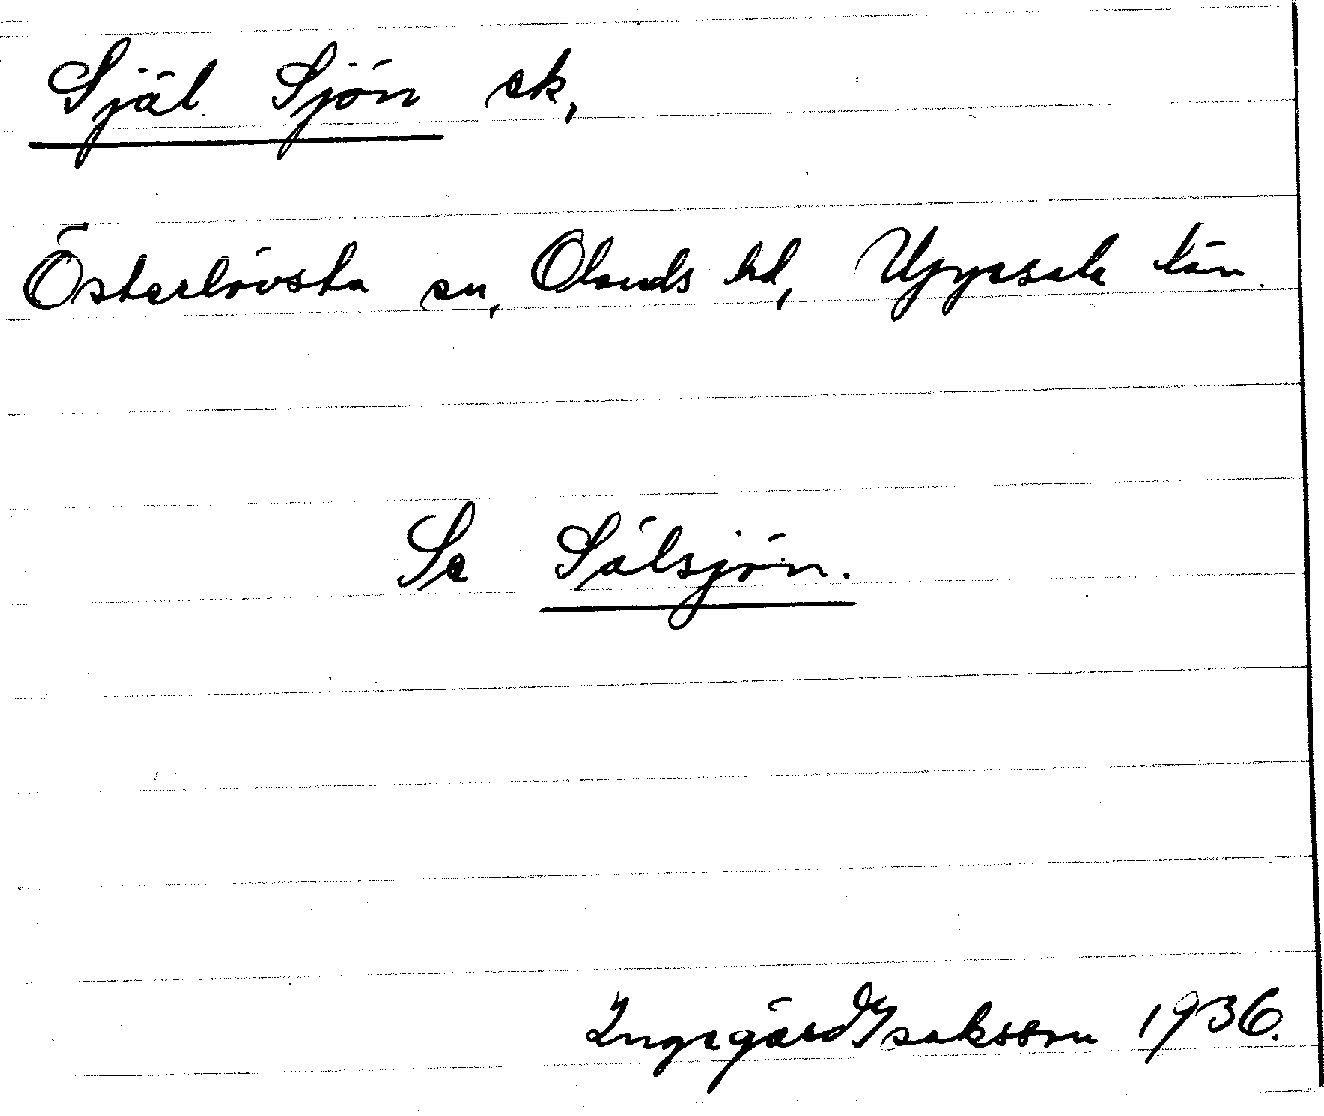 Själ Sjön ek,
Österlövsta sn, Olands hd, Uppsala län.
Se Sälsjön.
Ingegärd Isaksson 1936.